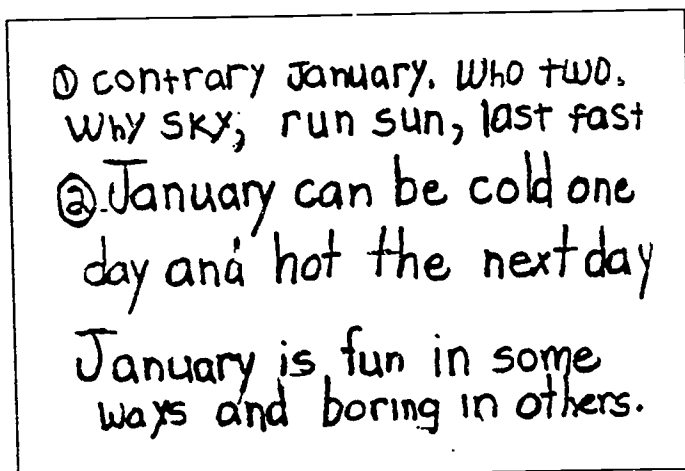 ① contrary January. Who two.
Why sky; run sun, last fast
②. January can be cold one
day and hot the next day
January is fun in some
ways and boring in others.